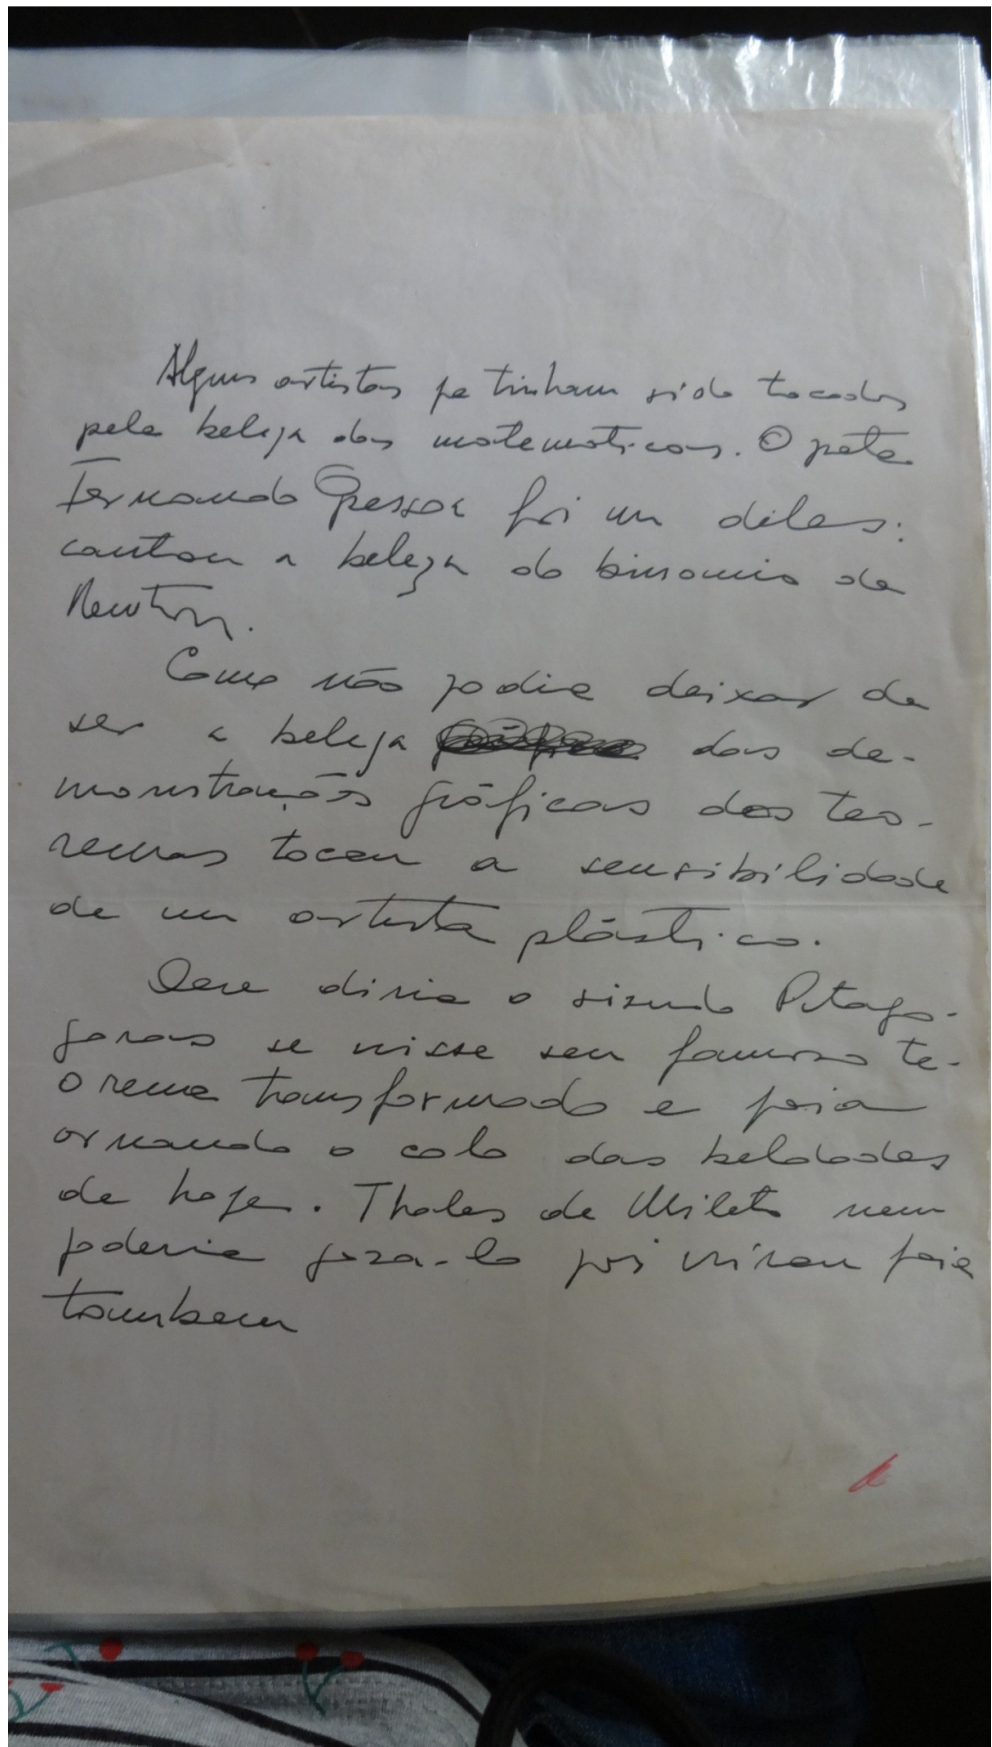 Alguns artistas ja tinham sido tocados
pela beleza das matematicas. O poeta
Fernando Pessoa foi um deles:
cantou a beleza do binomio de
Newton.
Como não podia deixar de
ser a beleza das de-
monstrações gráficas dos teo-
remas tocou a sensibilidade
de um artista plástico.
Que diria o sisudo Pitago-
goras se visse seu famoso te-
orema transformado e joia
ornando o colo das beldades
de hoje. Thales de Mileto nem
poderia goza-lo poi virou joia
tambem